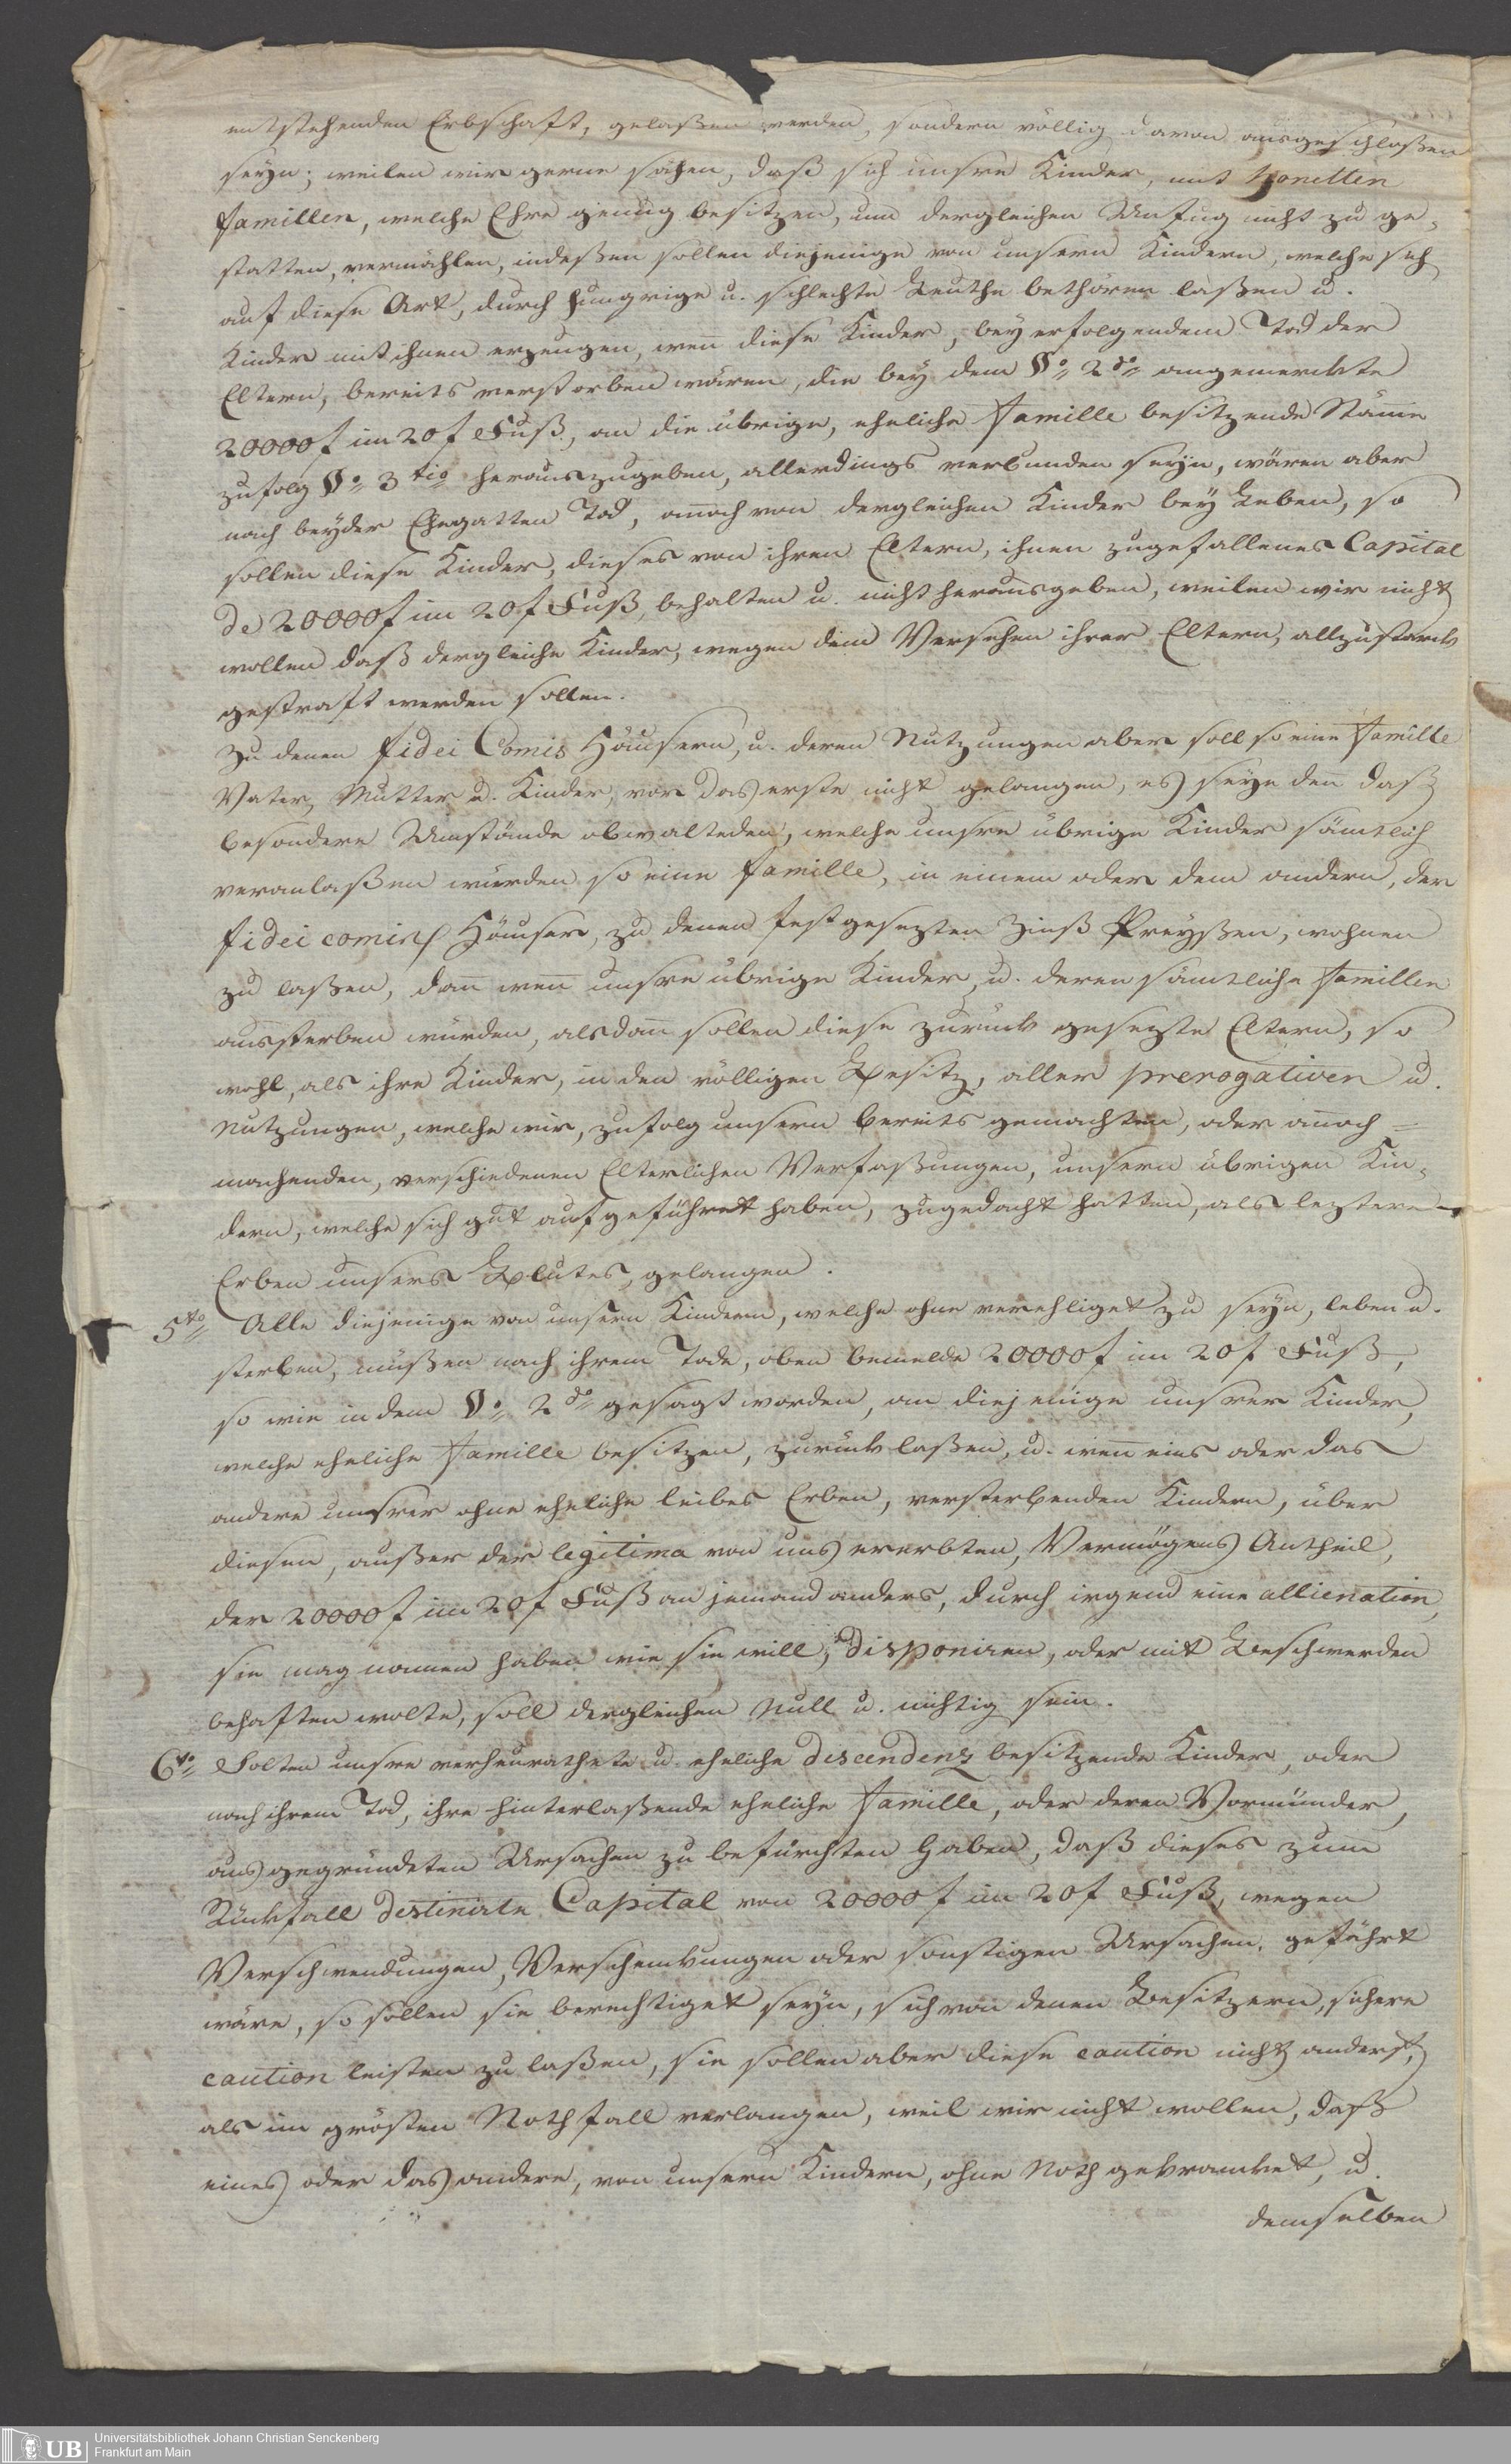 entstehenden Erbschaft, gelaßen werden, sondern völlig davon ausgeschloßen
seyn; weilen wir gerne sähen, daß sich unsre Kinder, mit honetten
Famillen, welche Ehre genug besitzen, um dergleichen Unfug nicht zu ge-
statten, vermählen, indeßen sollen diejenige von unsern Kindern, welche sich
auf diese Art, durch hungrige u. schlechte Leuthe bethören laßen u.
Kinder mit ihnen erzeugen, weñ diese Kinder, bey erfolgendem Tod der
Eltern, bereits verstorben wären, die bey dem §o 2do angemerckte
20000 f im 20 f Fuß, an die übrige, eheliche Famille besitzende Stäm̄e
zufolg §o 3tio herauszugeben, allerdings verbunden seyn, wären aber
nach beyder Ehegatten Tod, an̄och von dergleichen Kinder bey Leben, so
sollen diese Kinder, dieses von ihren Eltern, ihnen zugefallenes Capital
de 20000 f im 20 f Fuß, behalten u. nicht herausgeben, weilen wir nicht
wollen daß dergleiche Kinder, wegen dem Versehen ihrer Eltern, allzustarck
gestraft werden sollen.
Zu denen fidei Comis Häusern, u. deren Nutzungen aber soll so eine Famille
Vater, Mutter u. Kinder, vor das erste nicht gelangen, es seye den̄ daß
besondere Umstände obwalteden, welche unsre übrige Kinder sämtlich
veranlaßen würden so eine Famille, in einem oder dem andern, der
fidei comiss Häuser, zu denen festgesezten Zinß Preyßen, wohnen
zu laßen, dan̄ wen̄ unsre übrige Kinder, u. deren sämtliche Famillen
aussterben würden, alsdan̄ sollen diese zurück gesezte Eltern, so
wohl, als ihre Kinder, in den völligen Besitz, aller prerogativen u.
Nutzungen, welche wir, zufolg unsern bereits gemachten, oder an̄och =
machenden, verschiedenen Elterlichen Verfaßungen, unsern übrigen Kin-
dern, welche sich gut aufgeführet haben, zugedacht hatten, als leztere
Erben unsers Blutes, gelangen.
5to Alle diejenige von unsern Kindern, welche ohne verehliget zu seyn, leben u.
sterben, müßen nach ihrem Tode, oben bemelde 20000 f im 20 f Fuß,
so wie in dem §o 2do gesagt worden, an diejenige unsrer Kinder,
welche eheliche Famille besitzen, zurück laßen, u. wen̄ eins oder das
andere unsrer ohne eheliche leibes Erben, versterbenden Kindern, über
diesen, außer der legitima von uns ererbten, Vermögens Antheil,
der 20000 f im 20 f Fuß an jemand anders, durch irgend eine allienation,
sie mag namen haben wie sie will, disponiren, oder mit Beschwerden
behaften wolte, soll dergleichen Null u. nichtig sein.
6to Solten unsre verheurathete u. eheliche descendenz besitzende Kinder, oder
nach ihrem Tod, ihre hinterlaßende eheliche Famille, oder deren Vormünder,
aus gegründeten Ursachen zu befürchten haben, daß dieses zum
Rückfall destinirte Capital von 20000 f im 20 f Fuß, wegen
Verschwendungen, Verschenkungen oder sonstigen Ursachen, gefährt
wäre, so sollen sie berechtiget seyn, sich von denen Besitzern, sichere
caution leisten zu laßen, sie sollen aber diese caution nicht anderst,
als im grösten Nothfall verlangen, weil wir nicht wollen, daß
eines oder das andere, von unsern Kindern, ohne Noth gekrancket, u.
demselben
UB Universitätsbibliothek Johann Christian Senckenberg
Frankfurt am Main